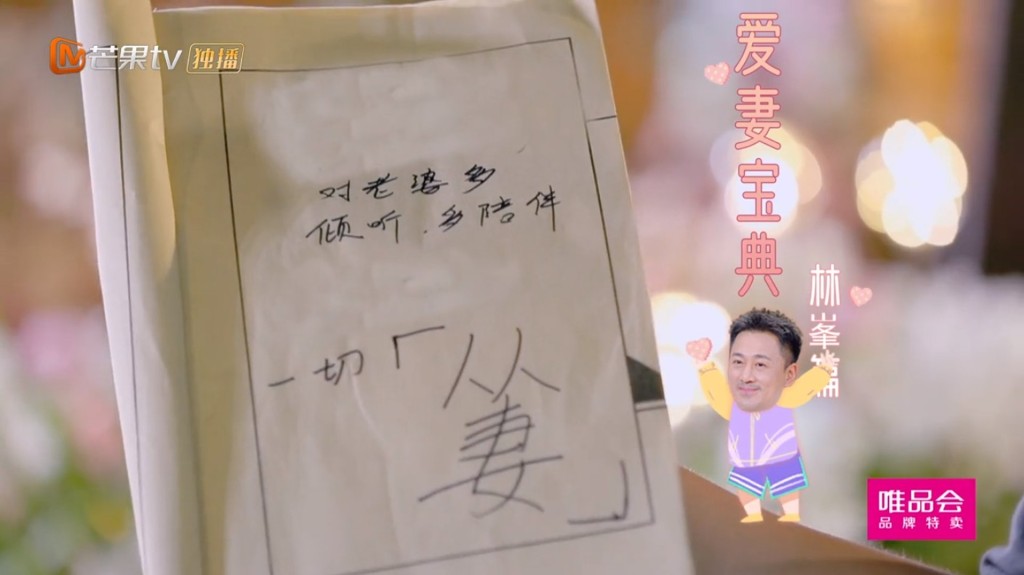 芒果tv 独播
爱妻宝典
林峯篇
对老婆多
倾听.多陪伴
一切「从
妻」
唯品会
品牌特卖